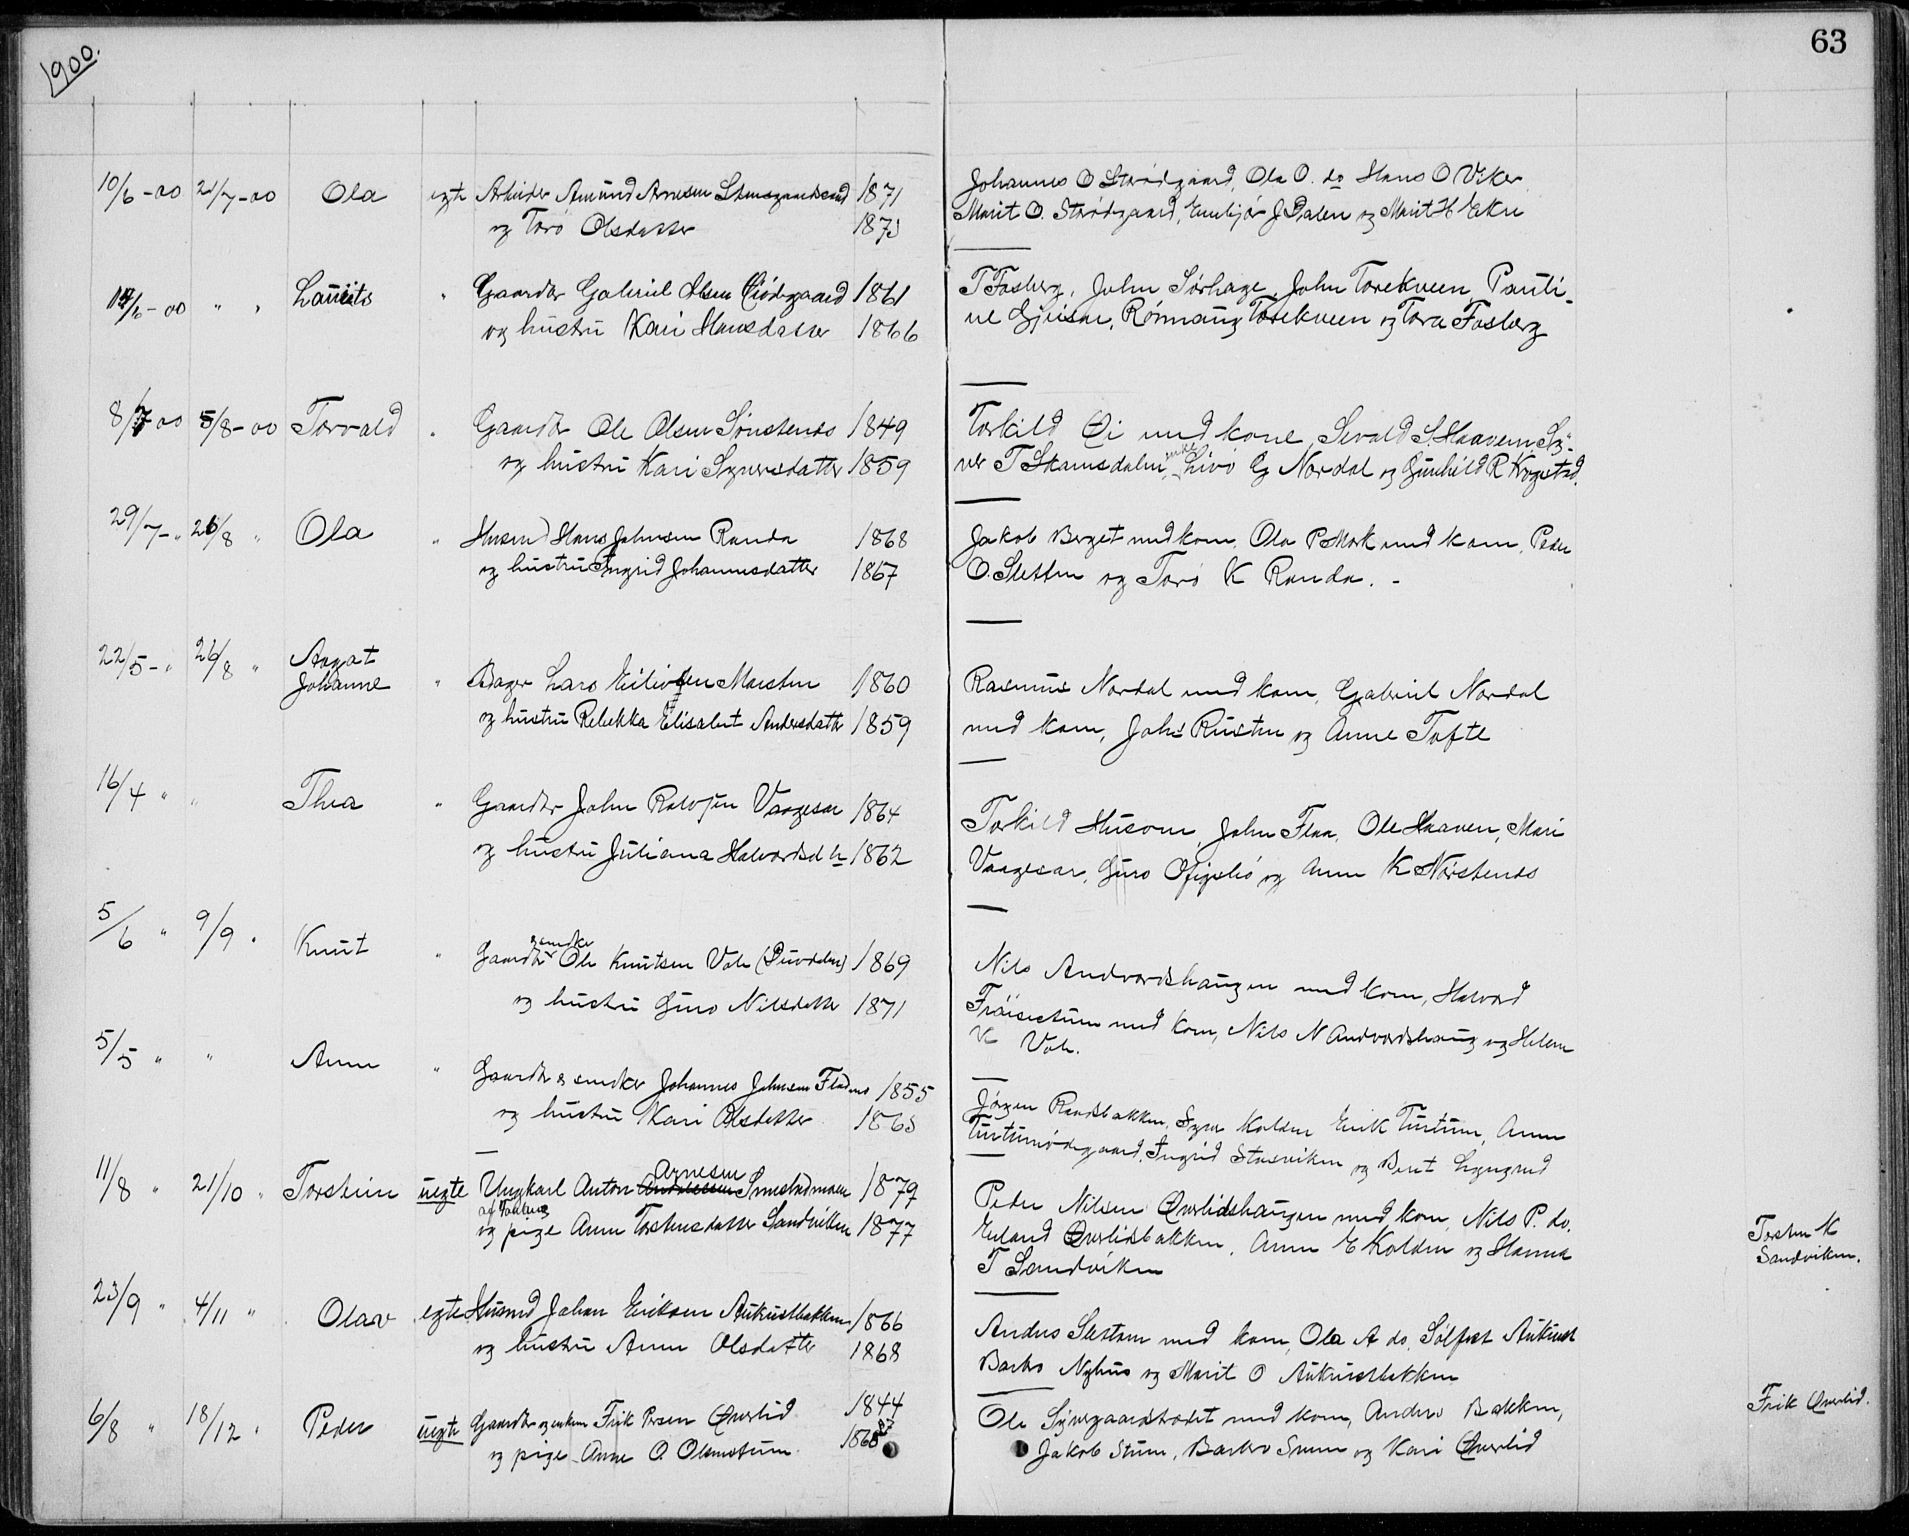 63
1900.
10/6 - 00 21/7 - 00 Ola egte Arbeider Amund Arnesen 1871
og Torø Olsdatter 1873
Johannes O Strødgaard, Ola O. do Hans O Viker
Marit O. Strødgaard, J Dalen og Marit H Ekre
/6 - 00 " " Laurits " Gaardbr Gabriel Olsen 1861
og hustru Kari Hansdatter 1866
T Fosberg, John Sørhage, John Torekveen Pauli-
ne Gjeisar, Rønnaug Torekveen og Tora Fosberg
8/7 00 5/8 - 00 Torvald " Gaardbr Ole Olsen Sønstenes 1849
og hustru Kari Syversdatter 1859
Torkild Øi med kone, Sevald S. Haaven Sy-
ver T Skamsdalen, enke Livø G Nordal og Gunhild R Krogstad.
29/7 - " 26/8 " Ola " Husmd Hans Johnsen Randa 1868
og hustru Ingrid Johannesdatter 1867
Jakob Berget med kone, Ola P Mork med kone, Peder
O. Sletten og Torø K Randa. -
22/5 - " 26/8 " Aagat
Johanne " Bager Lars Eilivsen Marsten 1860
og hustru Rebekka Elisabet Andersdatter 1859
Rasmus Nordal med kone, Gabriel Nordal
med kone, Johs Rusten og Anne Tofte
16/4 " " Thea " Gaardbr John Rolvsen Vaagesar 1864
og hustru Juliana Halvordsdtr 1862
Torkild Husom, John Flaa, Ole Haaven, Mari
Vaagesar, Guro og Anne K Nørstenes
5/6 " 9/9 " Knut " Gaardbr & smdkr Ole Knutsen Vole 1869
og hustru Guro Nilsdatter 1871
Nils Andvordshaugen med kone, Halvord
med kone, Nils N Andvordshaug og Helene
K Vole.
5/5 " " Anne " Gaardbr & smdker Johannes Johnsen 1855
og hustru Kari Olsdatter 1863
Jørgen Randsbakken, Syver Kolden Erik Turtum, Anne
Turtumødegaard, Ingrid Stavviken og Berit Lyngved
11/8 " 21/10 " Torstein uegte Ungkarl Anton Arnesen Smestadmoen 1879
og pige Anne Torstensdatter Sandviken 1877
Peder Nilsen Qverlidshaugen med kone, Nils P. do.
Erland Qverlidsbakken, Anne E Kolden og Hanna
T Sandviken
Torsten K
Sandviken.
23/9 " 4/11 " Olav egte Husmd Johan Eriksen Aukrustbakken 1866
og hustru Anne Olsdatter 1868
Anders Slettom med kone, Ola A do, Sølfest Aukrust
Barbro Nyhus og Marit O Aukrustbakken
6/8 " 18/12 " Peder uegte Gaardbr og enkem Frik Persen Qverlid 1844
og pige Anne O. Olsmostuen. 1868
Ole Syvergaardtrødet med kone, Anders Bakken,
Jakob Stuen, Barbro Sveen og Kari Qverlid
Frik Qverlid.